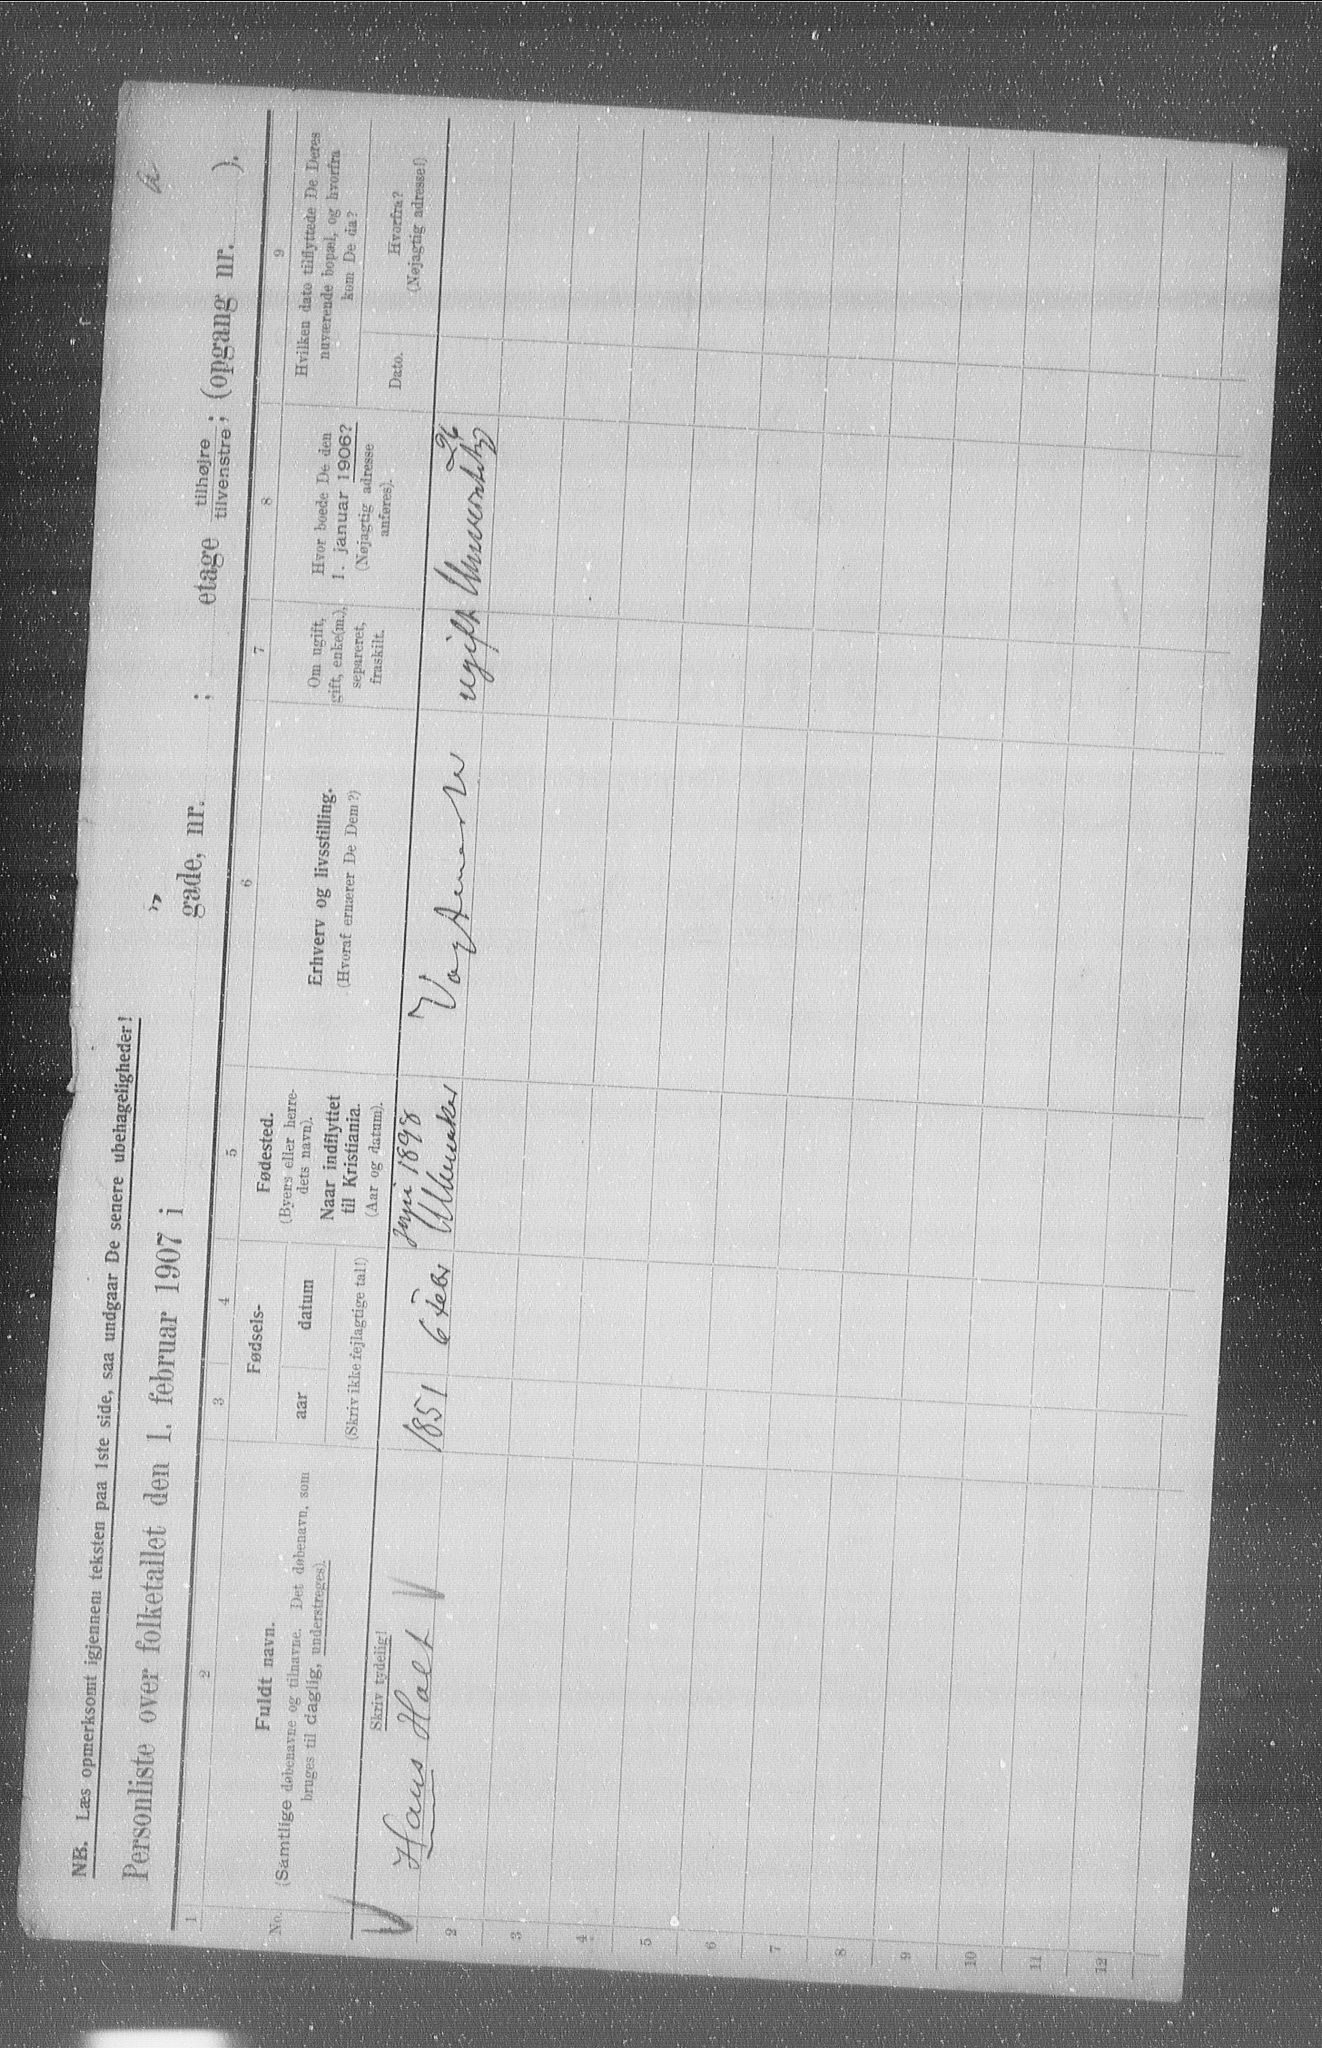 NB. Læs opmerksomt igjennem teksten paa 1ste side, saa undgaar De senere ubehageligheder!
Personliste over folketallet den 1. februar 1907 i gade, nr. ; etage tilhøjre tilvenstre; (opgang nr. ).
1 2 3 4 5 6 7 8 9
No.
Fuldt navn.
(Samtlige døbenavne og tilnavne. Det døbenavn, som
bruges til daglig, understreges).
Skriv tydelig!
Fødsels-
aar datum
(Skriv ikke fejlagtige tal!)
Fødested.
(Byers eller herre-
dets navn).
Naar indflyttet
til Kristiania.
(Aar og datum).
Erhverv og livsstilling.
(Hvoraf ernærer De Dem?)
Om ugift,
gift, enke(m.),
separeret,
fraskilt.
Hvor boede De den
1. januar 1906?
(Nøjagtig adresse
anføres).
Hvilken dato tilflyttede De Deres
nuværende bopæl, og hvorfra
kom De da?
Dato.
Hvorfra?
(Nøjagtig adresse!)
Hans Holt 1851 6 Febr 1898 Ullensaker ugift 26
2
3
4
5
6
7
8
9
10
11
12